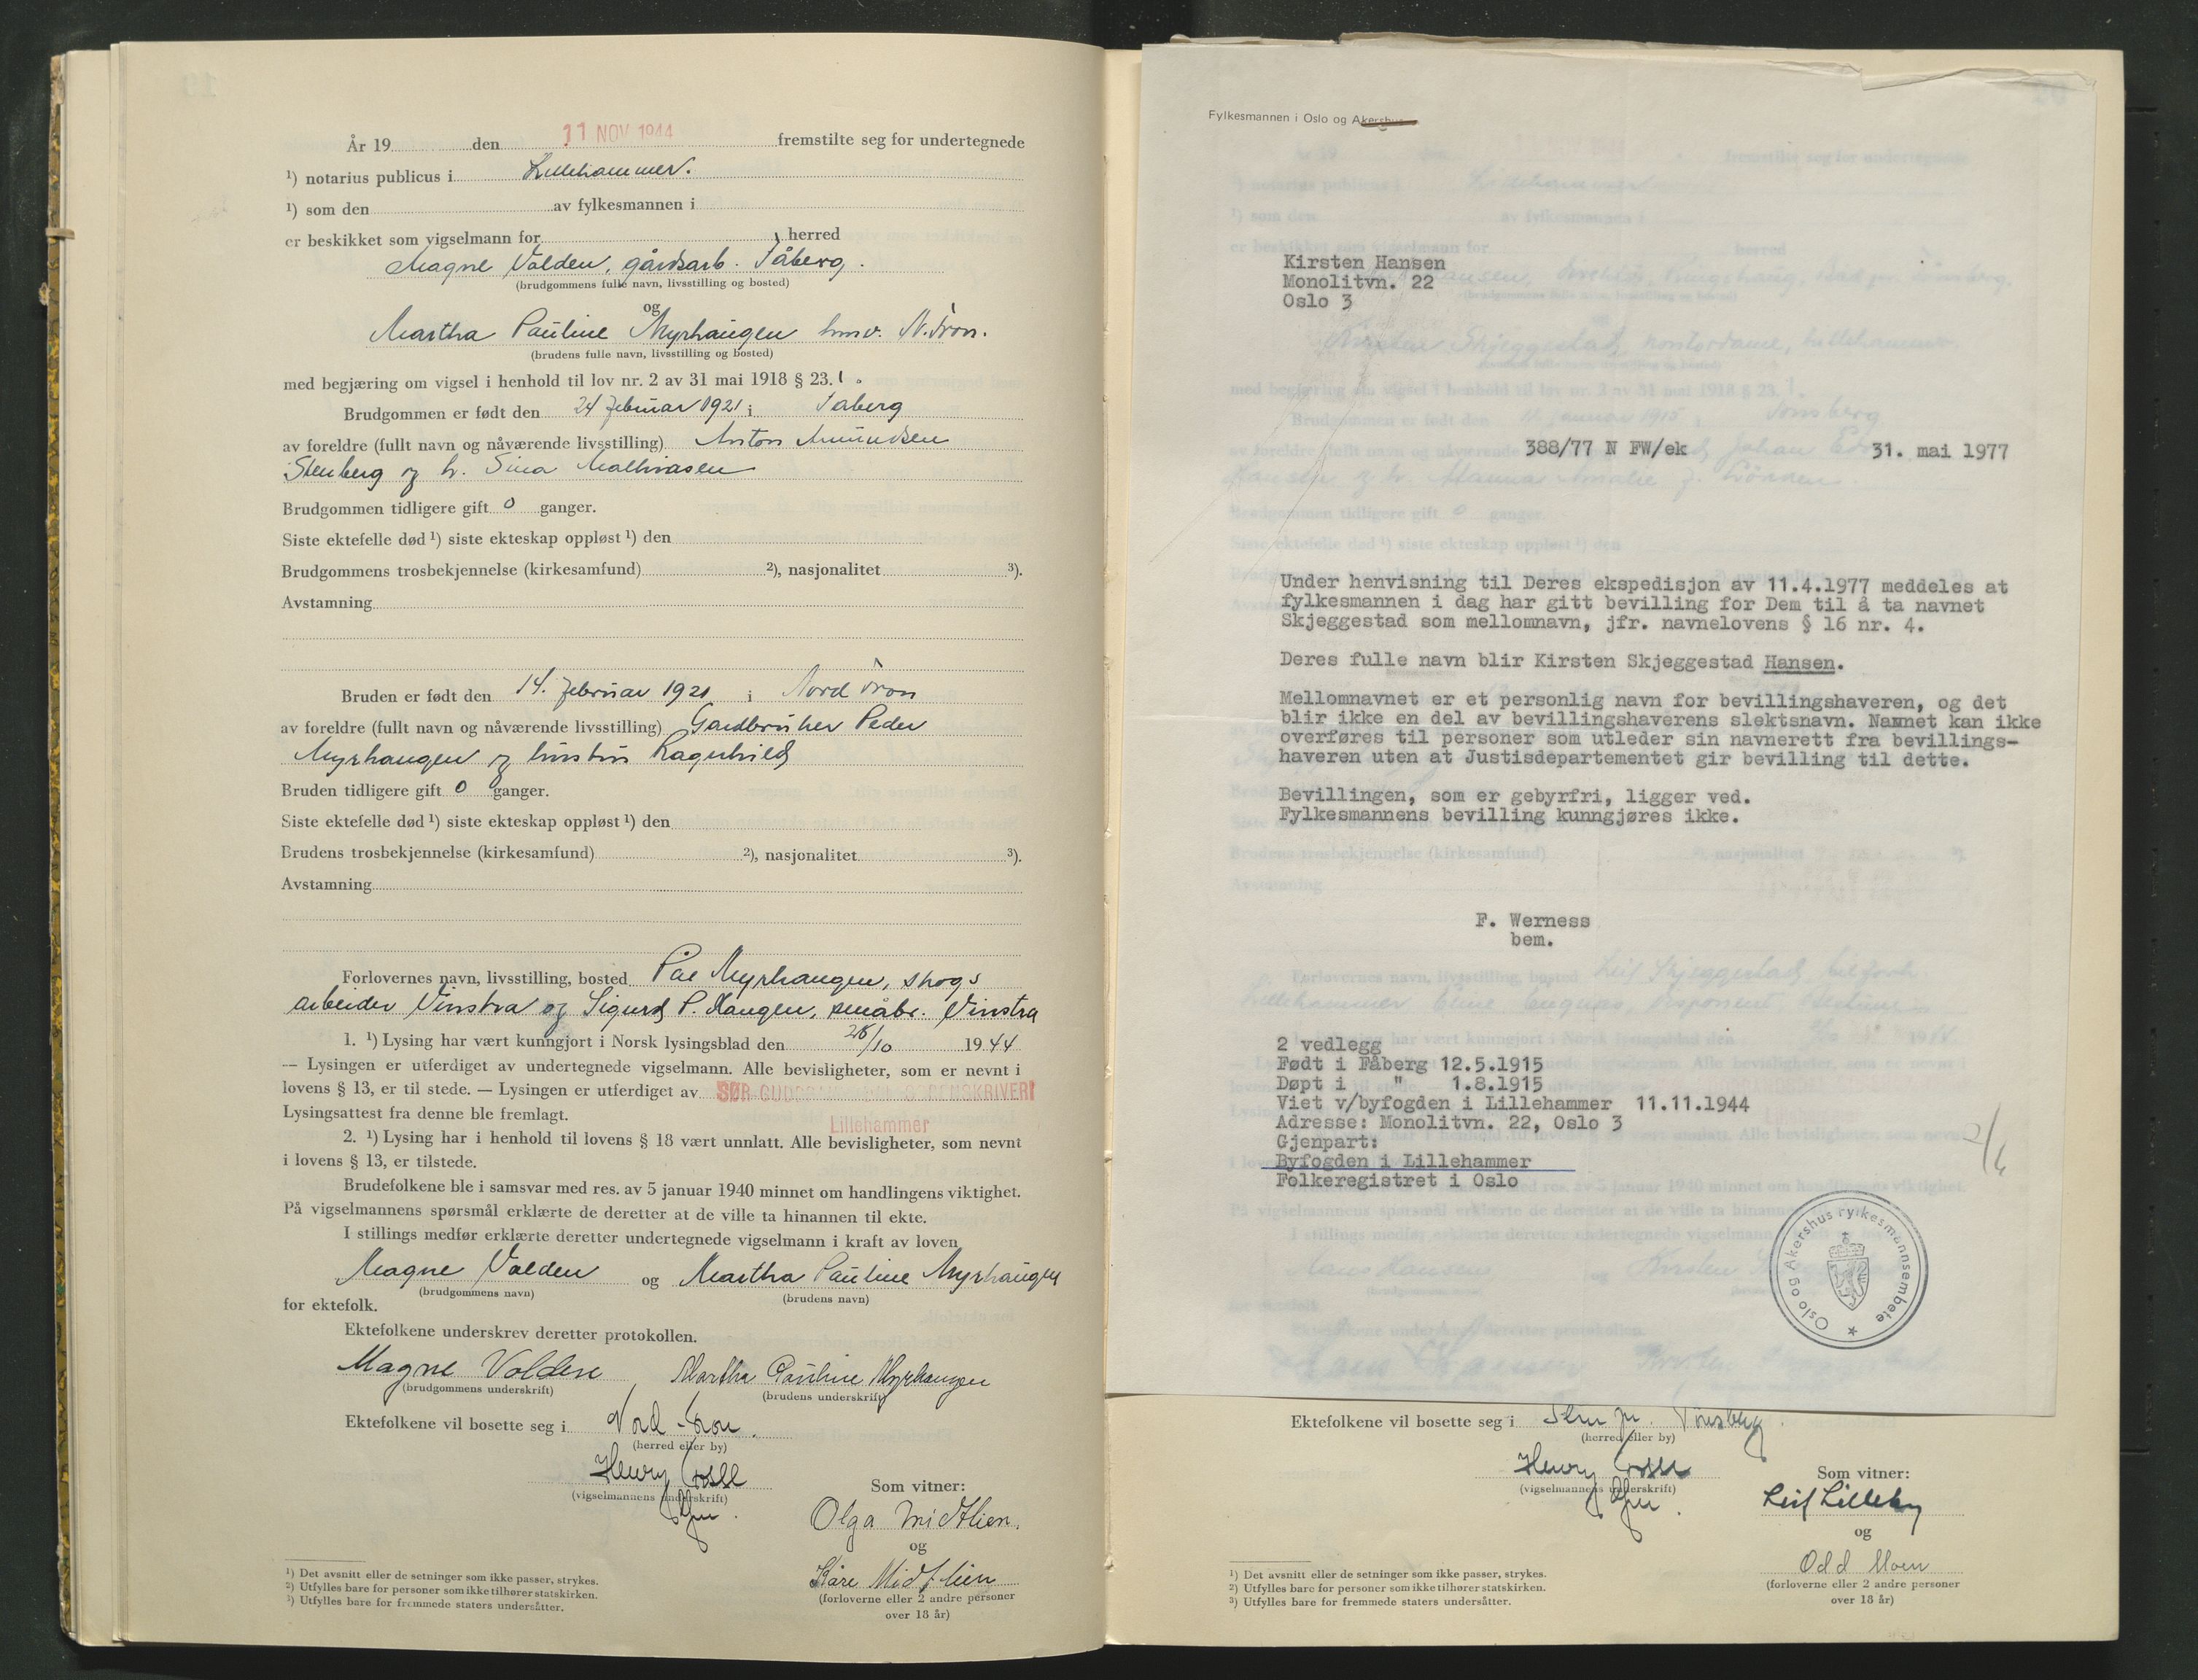 År 19 den 11 NOV 1944 fremstilte seg for undertegnede
¹) notarius publicus i Lillehammer.
¹) som den av fylkesmannen i
er beskikket som vigselmann for herred
Magne Volden, gårdsarb. Fåberg.
(brudgommens fulle navn, livsstilling og bosted)
og
Martha Pauline Myrhaugen husv. N. Fron.
(brudens fulle navn, livsstilling og bosted)
med begjæring om vigsel i henhold til lov nr. 2 av 31 mai 1918 § 23.1.
Brudgommen er født den 24 februar 1921 i Faberg
av foreldre (fullt navn og nåværende livsstilling) Anton Amundsen
Stenberg og h. Sina Mathiasen
Brudgommen tidligere gift 0 ganger.
Siste ektefelle død ¹) siste ekteskap oppløst ¹) den
Brudgommens trosbekjennelse (kirkesamfund) ²), nasjonalitet ³).
Avstamning
Bruden er født den 14. februar 1921 i Nord Fron
av foreldre (fullt navn og nåværende livsstilling) Gardbruker Peder
Myrhaugen og hustru Ragnhild
Bruden tidligere gift 0 ganger.
Siste ektefelle død ¹) siste ekteskap oppløst ¹) den
Brudens trosbekjennelse (kirkesamfund) ²), nasjonalitet ³).
Avstamning
Forlovernes navn, livsstilling, bosted Pål Myrhaugen, skogs
arbeider Vinstra og Sigurd P. Haugen, småbr. Vinstra
1. ¹) Lysing har vært kunngjort i Norsk lysingsblad den 26/10 1944
— Lysingen er utferdiget av undertegnede vigselmann. Alle bevisligheter, som er nevnt i
lovens § 13, er til stede. — Lysingen er utferdiget av SØR-GUDBRANDSDAL SORENSKRIVERI
Lysingsattest fra denne ble fremlagt.
Lillehammer
2. ¹) Lysing har i henhold til lovens § 18 vært unnlatt. Alle bevisligheter, som nevnt
i lovens § 13, er tilstede.
Brudefolkene ble i samsvar med res. av 5 januar 1940 minnet om handlingens viktighet.
På vigselmannens spørsmål erklærte de deretter at de ville ta hinannen til ekte.
I stillings medfør erklærte deretter undertegnede vigselmann i kraft av loven
Magne Volden og Martha Pauline Myrhaugen
(brudgommens navn) (brudens navn)
for ektefolk.
Ektefolkene underskrev deretter protokollen.
Magne Volden Martha Pauline Myrhaugen
(brudgommens underskrift) (brudens underskrift)
Ektefolkene vil bosette seg i Nord-Fron.
(herred eller by)
Henry
(vigselmannens underskrift)
Som vitner:
Olga Midtlien.
og
Kåre Midtlien
(forloverne eller 2 andre personer
over 18 år)
¹) Det avsnitt eller de setninger som ikke passer, strykes.
²) Utfylles bare for personer som ikke tilhører statskirken.
³) Utfylles bare for fremmede staters undersåtter.
Fylkesmannen i Oslo og Akershus
Kirsten Hansen
Monolitvn. 22
Oslo 3
388/77 N FW/ek 31. mai 1977
Under henvisning til Deres ekspedisjon av 11.4.1977 meddeles at
fylkesmannen i dag har gitt bevilling for Dem til å ta navnet
Skjeggestad som mellomnavn, jfr. navnelovens § 16 nr. 4.
Deres fulle navn blir Kirsten Skjeggestad Hansen.
Mellomnavnet er et personlig navn for bevillingshaveren, og det
blir ikke en del av bevillingshaverens slektsnavn. Namnet kan ikke
overføres til personer som utleder sin navnerett fra bevillings-
haveren uten at Justisdepartementet gir bevilling til dette.
Bevillingen, som er gebyrfri, ligger ved.
Fylkesmannens bevilling kunngjøres ikke.
F. Werness
bem.
2 vedlegg
Født i Fåberg 12.5.1915
Døpt i " 1.8.1915
Viet v/byfogden i Lillehammer 11.11.1944
Adresse: Monolitvn. 22, Oslo 3
Gjenpart:
Byfogden i Lillehammer
Folkeregistret i Oslo
2/6
Oslo og Akershus fylkesmannsembete
Ektefolkene vil bosette seg i Sem pr. Tønsberg.
(herred eller by)
Henry
(vigselmannens underskrift)
Som vitner:
Leif Lilleby
og
Odd Moen
(forloverne eller 2 andre personer
over 18 år)
¹) Det avsnitt eller de setninger som ikke passer, strykes.
²) Utfylles bare for personer som ikke tilhører statskirken.
³) Utfylles bare for fremmede staters undersåtter.